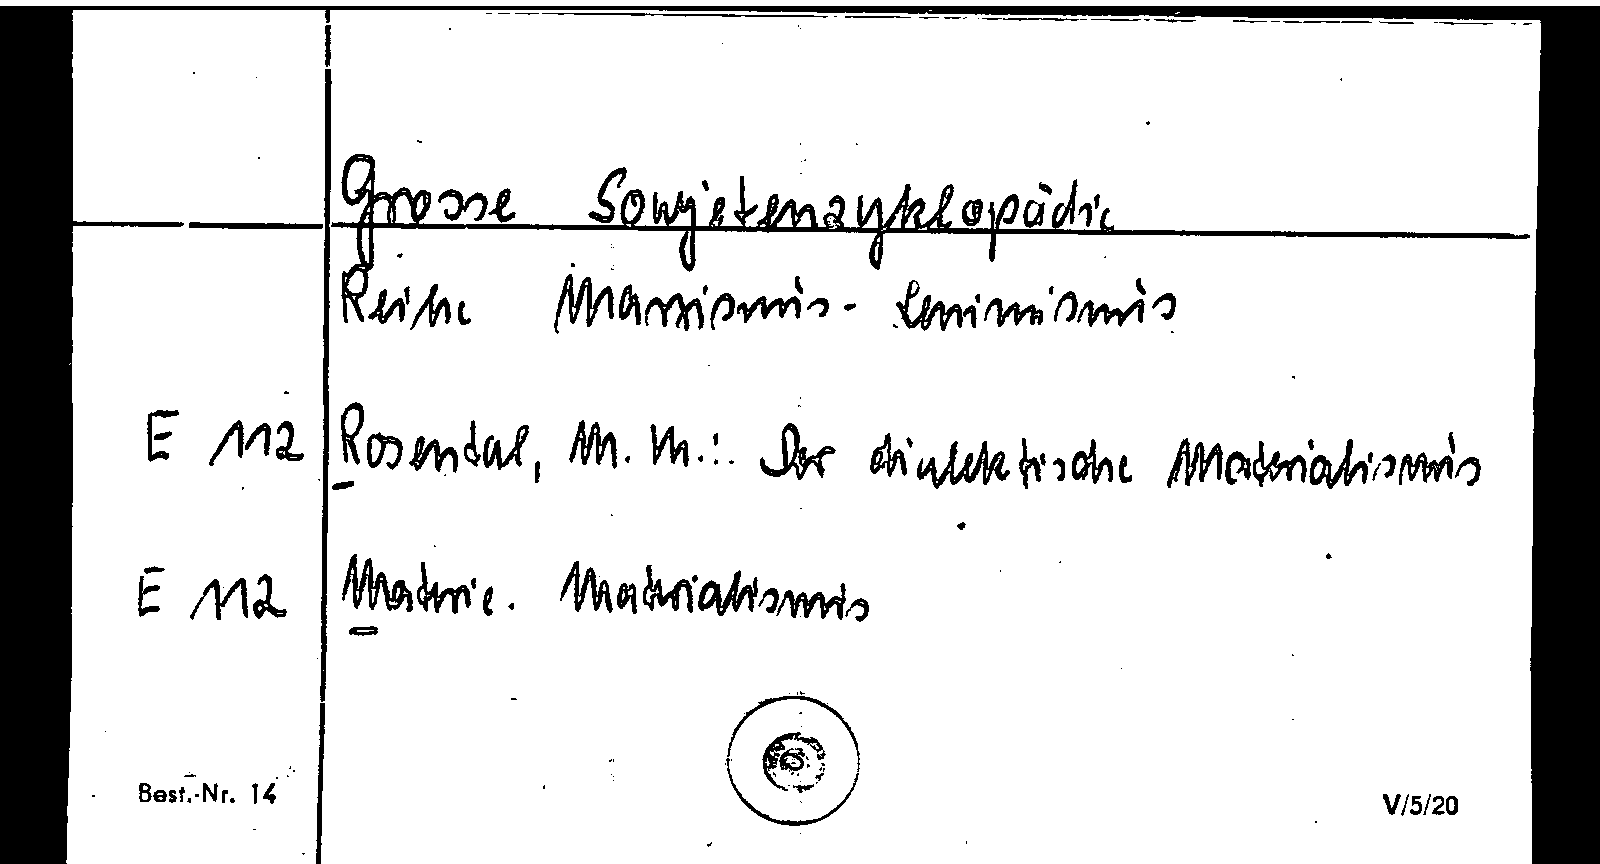 Grosse Sowjetenzyklopädie
Reihe Marxismus-Leninismus
E 112 Rosental, M. M.: Der dialektische Materialismus
E 112 Materie. Materialismus
Best.-Nr. 14 V/5/20